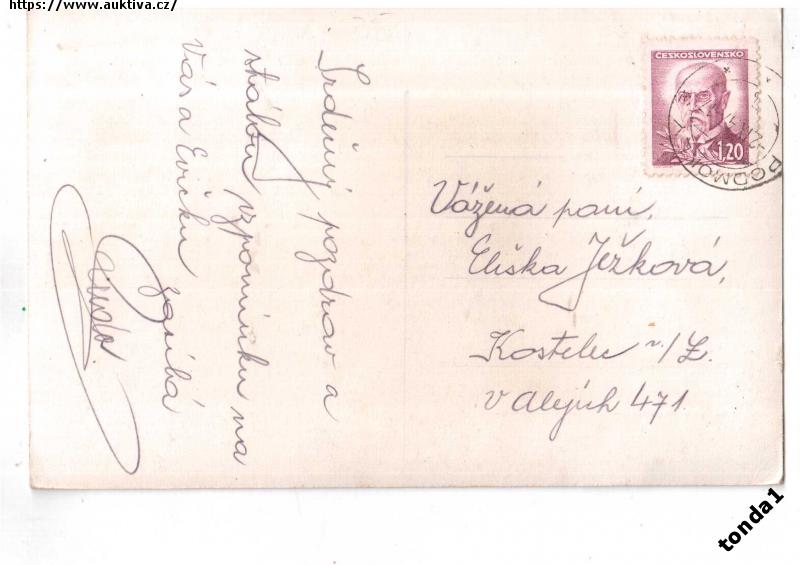 https://www.auktiva.cz/
Srdečný pozdrav a
stálou vzpomínku na
Vás a Evičku
ČESKOSLOVENSKO
1,20
Vážená paní,
Eliška Ježková,
Kostelec n/Z.
v Alejích 471
tonda1